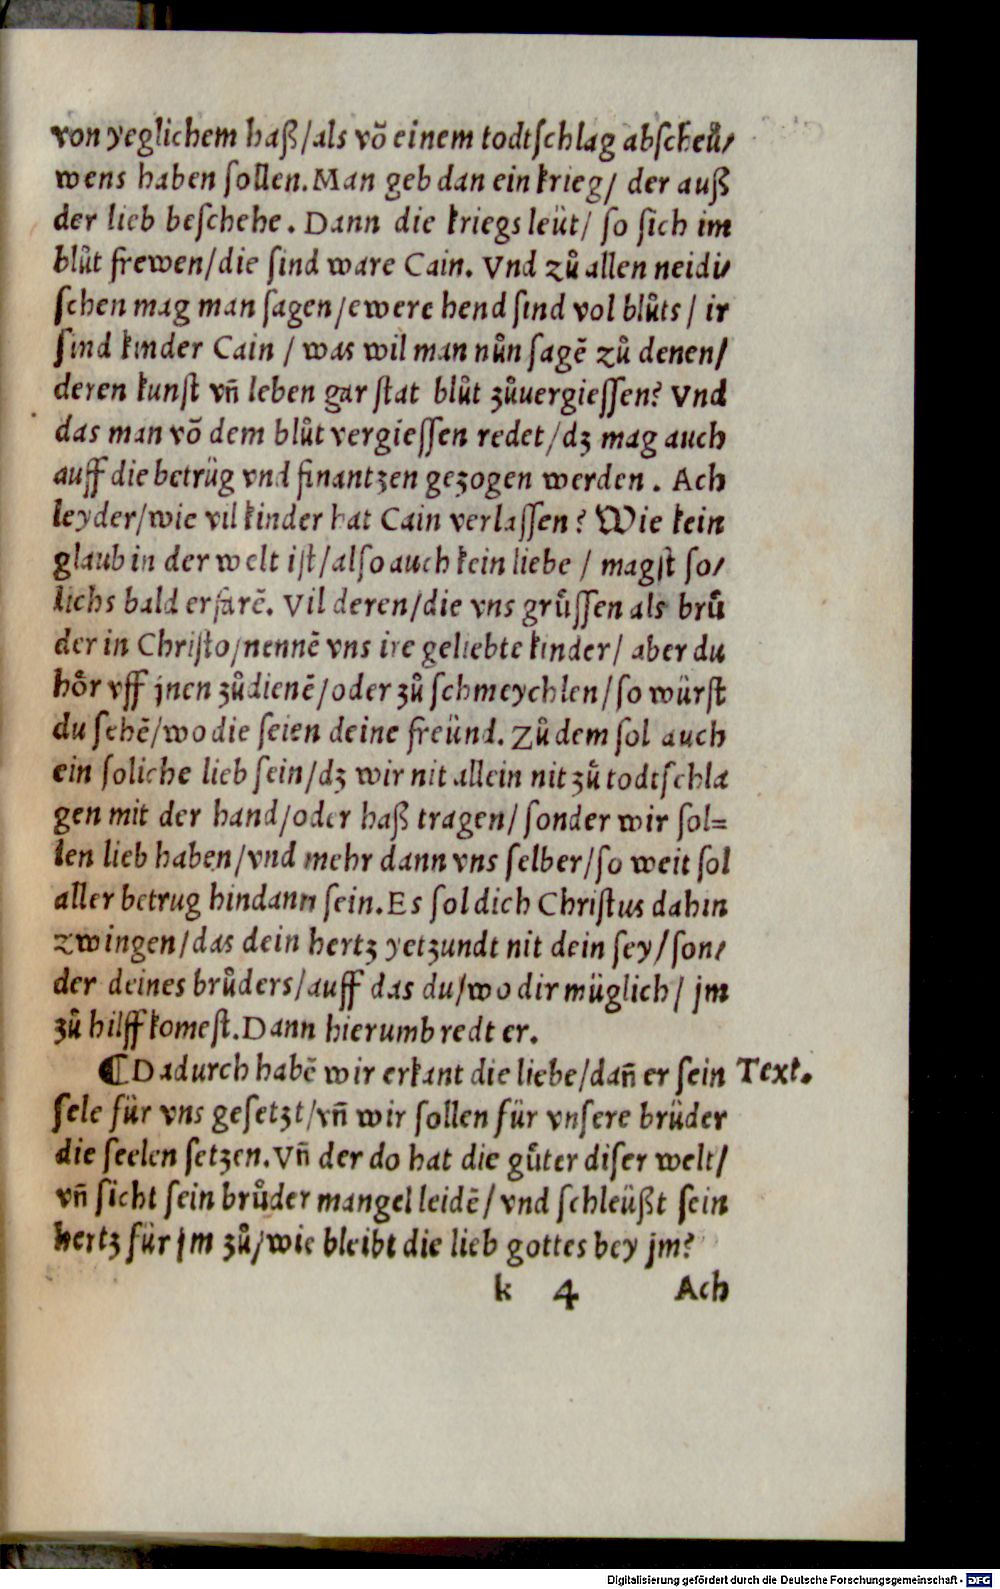 von yeglichem haß/als võ einem todtſchlag abſcheü/
wens haben ſollen. Man geb dan ein krieg/ der auß
der lieb beſchehe. Dann die kriegs leüt/ ſo ſich im
blůt frewen/die ſind ware Cain. Vnd zů allen neidi/
ſchen mag man ſagen/ewere hend ſind vol blůts/ ir
ſind kinder Cain / was wil man nůn ſagẽ zů denen/
deren kunſt vñ leben gar ſtat blůt zůuergieſſen? Vnd
das man võ dem blůt vergieſſen redet/dz mag auch
auff die betrüg vnd finantzen gezogen werden. Ach
leyder/wie vil kinder hat Cain verlaſſen? Wie kein
glaub in der welt iſt/alſo auch kein liebe / magſt ſo/
lichs bald erfarẽ. Vil deren/die vns grůſſen als brů
der in Chriſto/nennẽ vns ire geliebte kinder/ aber du
hör vff jnen zůdienẽ/oder zů ſchmeychlen/ſo würſt
du ſehẽ/wo die ſeien deine freünd. Zů dem ſol auch
ein ſoliche lieb ſein/dz wir nit allein nit zů todtſchla
gen mit der hand/oder haß tragen/ſonder wir ſol=
len lieb haben/vnd mehr dann vns ſelber/ſo weit ſol
aller betrug hindann ſein. Es ſol dich Chriſtus dahin
zwingen/das dein hertz yetzundt nit dein ſey/ſon/
der deines brůders/auff das du/wo dir müglich/ jm
zů hilff komeſt. Dann hierumb redt er.
¶ Dadurch habẽ wir erkant die liebe/dañ er ſein Text.
ſele für vns geſetzt/vñ wir ſollen für vnſere brüder
die ſeelen ſetzen. Vñ der do hat die gůter diſer welt/
vñ ſicht ſein brůder mangel leidẽ/ vnd ſchleüßt ſein
hertz für jm zů/wie bleibt die lieb gottes bey jm?
k 4 Ach
Digitalisierung gefördert durch die Deutsche Forschungsgemeinschaft - DFG